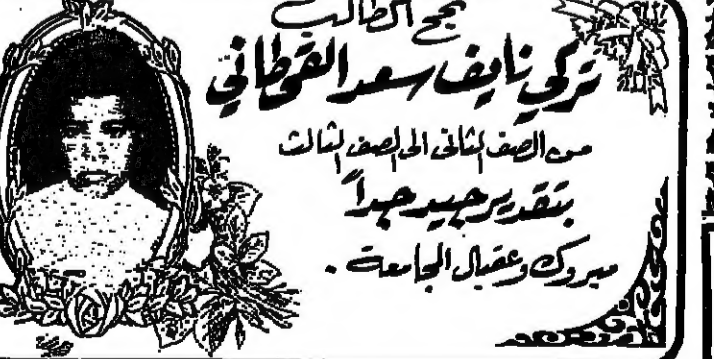 نجح الطالب
تركي نايف سعد القحطاني
من الصف الثاني الى الصف الثالث
بتقدير جيد جداً
مبروك وعقبال الجامعة .